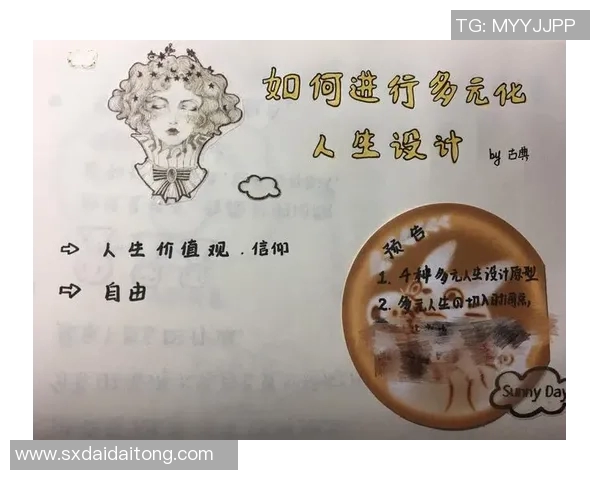 TG: MYYJJPP
如何进行多元化
人生设计 by 古典
⇨ 人生价值观.信仰
⇨ 自由
预告
1. 4种多元人生设计原型
2. 多元人生的切入时间点,
Sunny Day
www.sxdaidaitong.com